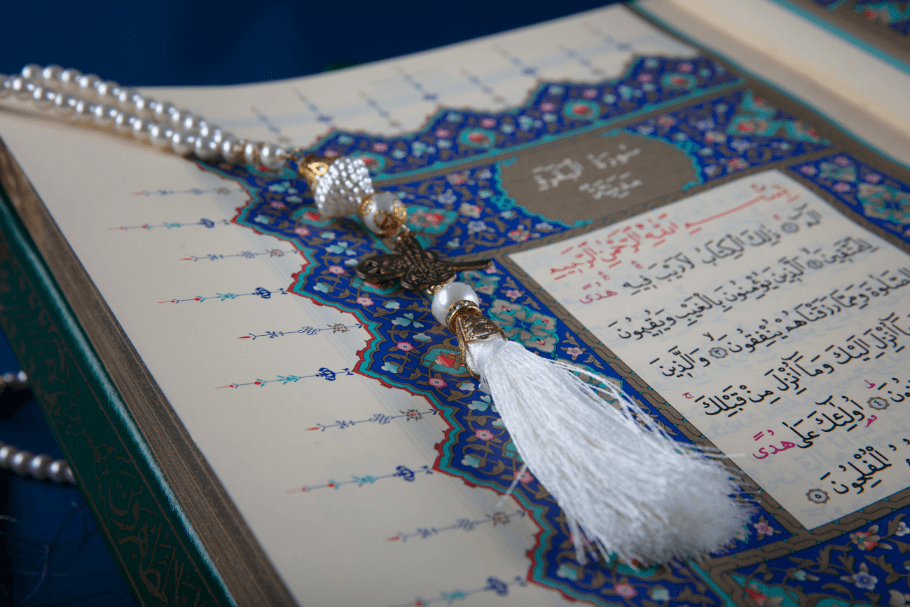 سورة البقرة
مدنية
بسم الله الرحمن الرحيم
الم ۝ ذَلِكَ الْكِتَابُ لَا رَيْبَ فِيهِ هُدًى
لِلْمُتَّقِينَ ۝ الَّذِينَ يُؤْمِنُونَ بِالْغَيْبِ وَيُقِيمُونَ
الصَّلَاةَ وَمِمَّا رَزَقْنَاهُمْ يُنْفِقُونَ ۝ وَالَّذِينَ
أُنْزِلَ إِلَيْكَ وَمَا أُنْزِلَ مِنْ قَبْلِكَ
أُولَئِكَ عَلَى هُدًى
الْمُفْلِحُونَ ۝